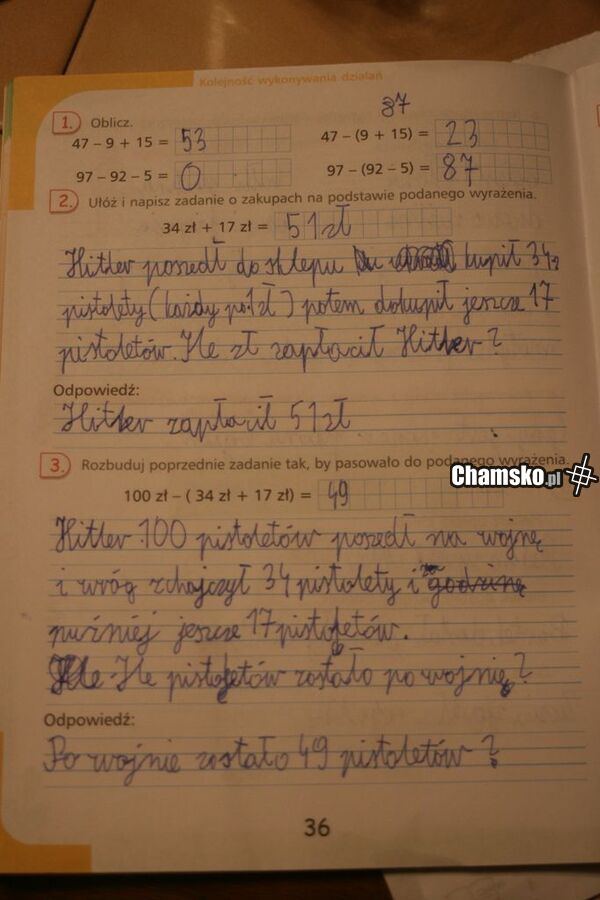 Kolejność wykonywania działań
87
1. Oblicz.
47 – 9 + 15 = 53 47 – (9 + 15) = 23
97 – 92 – 5 = 0 97 – (92 – 5) = 87
2. Ułóż i napisz zadanie o zakupach na podstawie podanego wyrażenia.
34 zł + 17 zł = 51 zł
Hitler poszedł do sklepu kupił 34
pistolety (każdy po 1 zł) potem dokupił jeszcze 17
pistoletów. Ile zł zapłacił Hitler?
Odpowiedź:
Hitler zapłacił 51 zł
3. Rozbuduj poprzednie zadanie tak, by pasowało do podanego wyrażenia.
Chamsko.pl
100 zł – ( 34 zł + 17 zł) = 49
Hitler 100 pistoletów poszedł na wojnę
i wróg zchajczył 34 pistolety i godzinę
puźniej jeszcze 17 pistoletów.
Ile pistoletów zostało po wojnie?
Odpowiedź:
Po wojnie zostało 49 pistoletów?
36